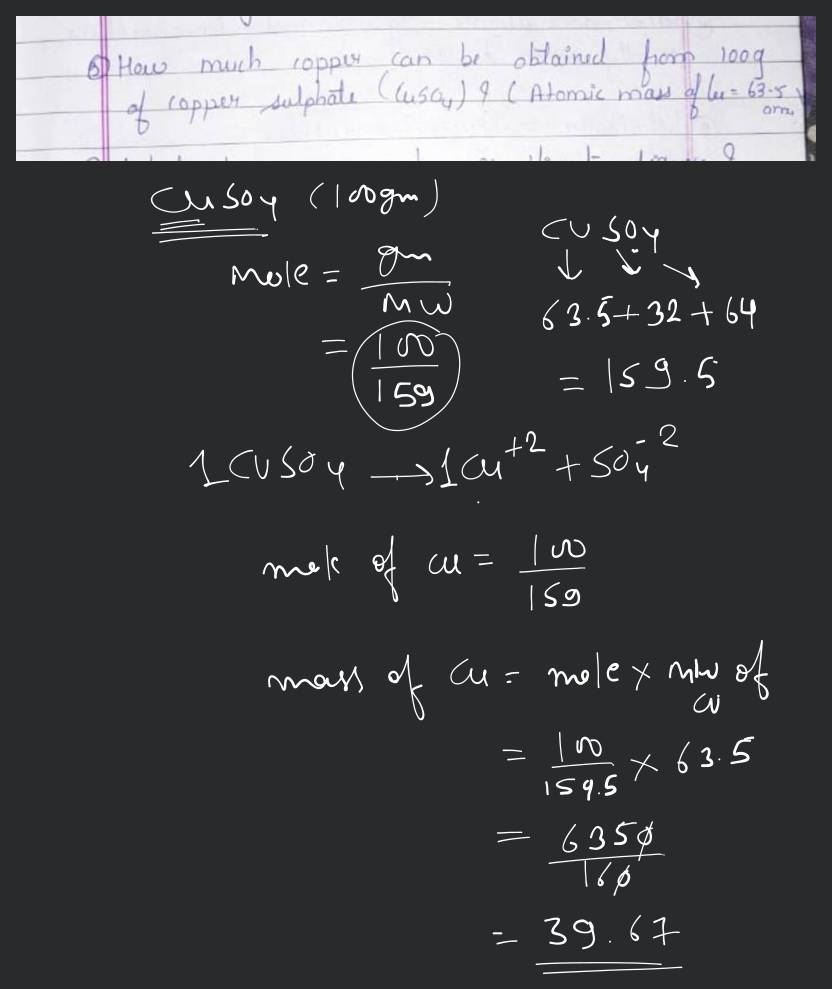 6) How much copper can be obtained from 100g
of copper sulphate (CuSO4) ? ( Atomic mass of Cu = 63.5
amu
CuSO4 (100gm)
CUSO4
Mole = gm / MW
63.5+32+64
= 100 / 159
= 159.5
1CUSO4 → 1Cu+2 + SO4-2
mole of cu = 100 / 159
mass of Cu = mole × MW of
CU
= 100 / 159.5 × 63.5
= 6350 / 160
= 39.67